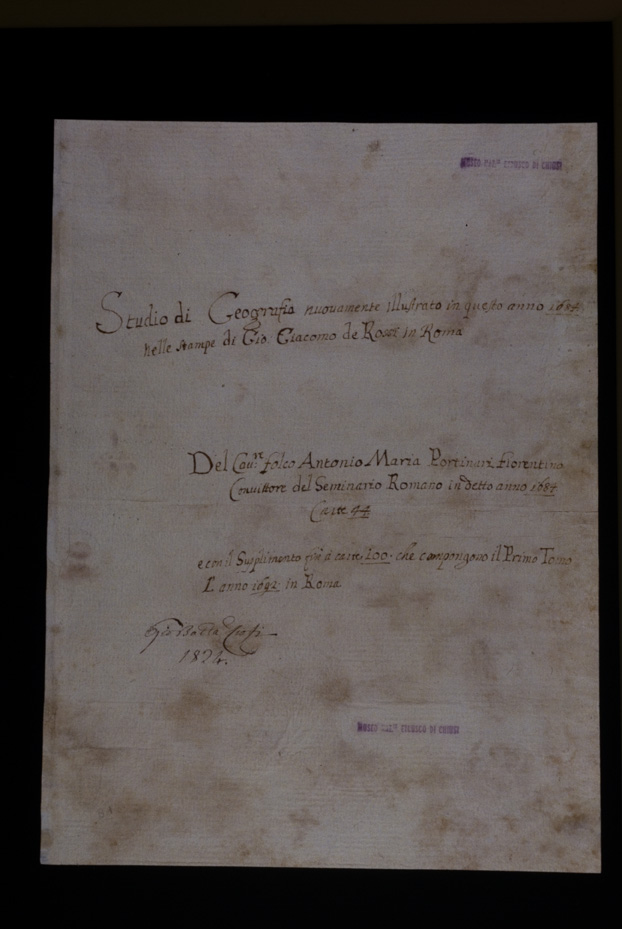 MUSEO NAZ.LE ETRUSCO DI CHIUSI
Studio di Geografia nuovamente illustrato in questo anno 1684
nelle stampe di Gio. Giacomo de Rossi in Roma
Del Cau.re folco Antonio Maria Portinari fiorentino
Convittore del Seminario Romano in detto anno 1684
Carte 94
e con il Supplimento à carte 100. che compongono il Primo Tomo
L'anno 1692 in Roma
1824.
MUSEO NAZ.LE ETRUSCO DI CHIUSI